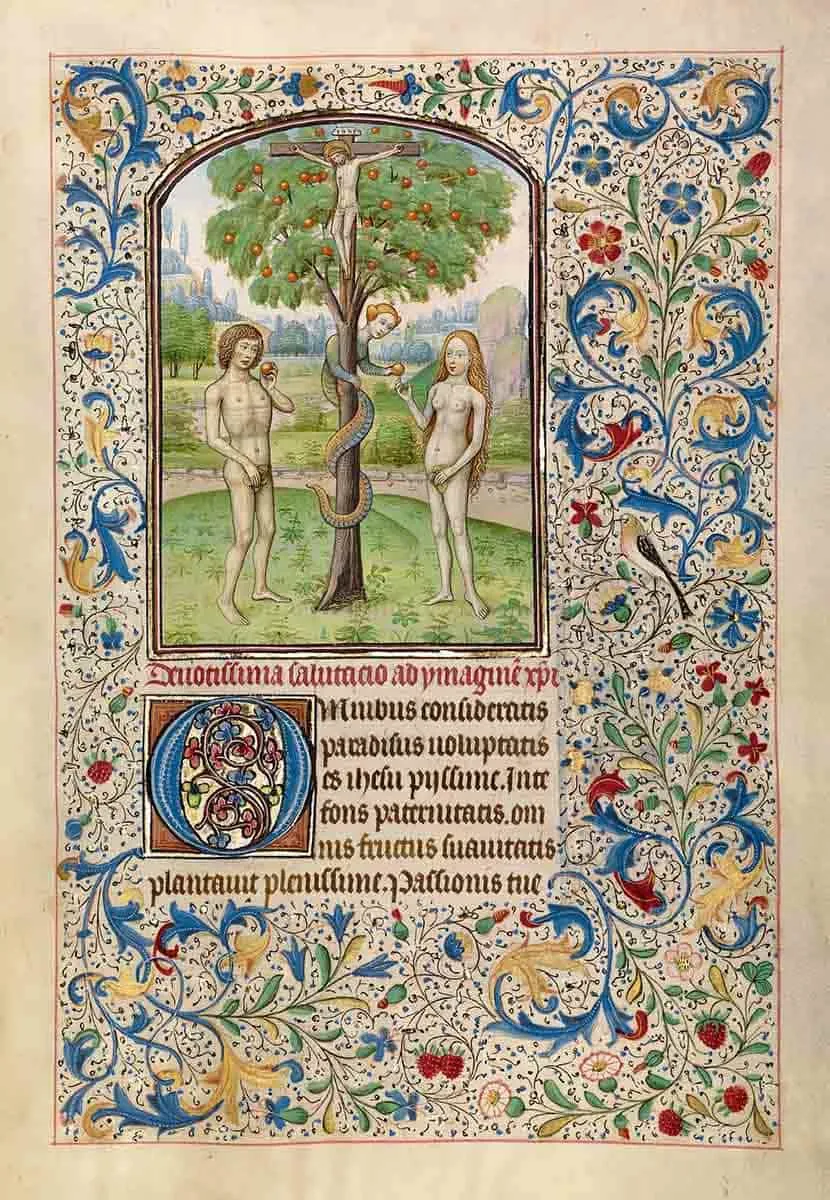 Deuotissima salutacio ad ymaginē xpi
OMnibus consideratis
paradisus uoluptatis
es ihesu pyssime. Inte
fons paternitatis. om
nis fructus suauitatis
plantauit plenissime. Passionis tue